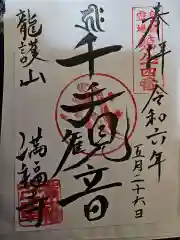 奉拝
令和六年
五月二十六日
千手観音
龍護山
満福寺